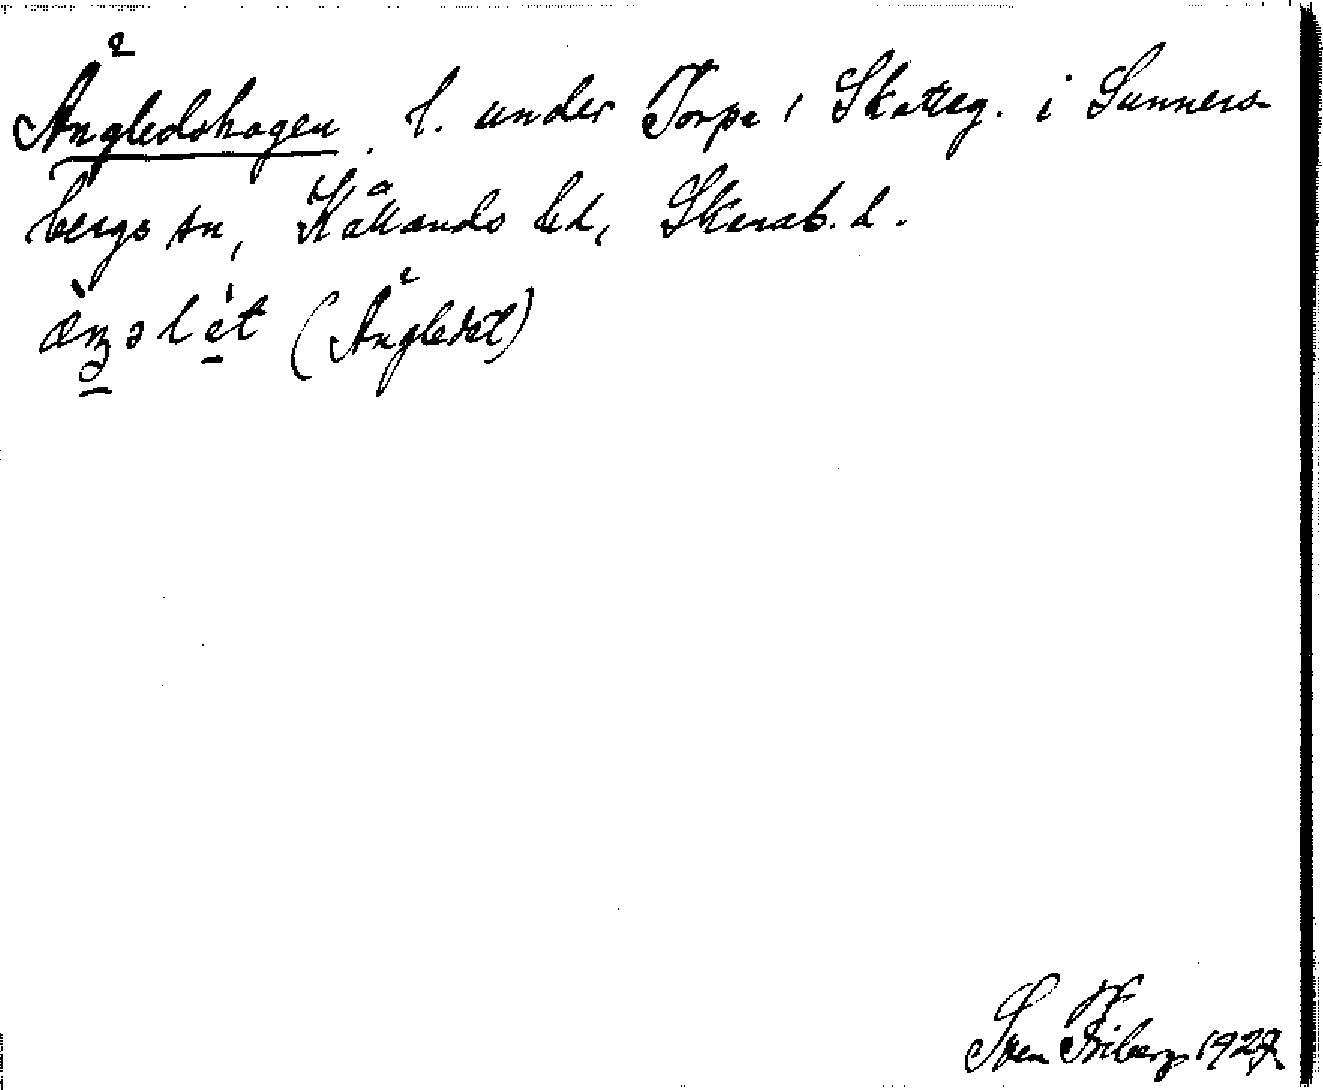 Ängledshagen. l. under Torpe 1 Skatteg. i Sunners-
bergs sn, Kållands hd, Skarab. l.
(Ängledet)
Sven Friberg 1927